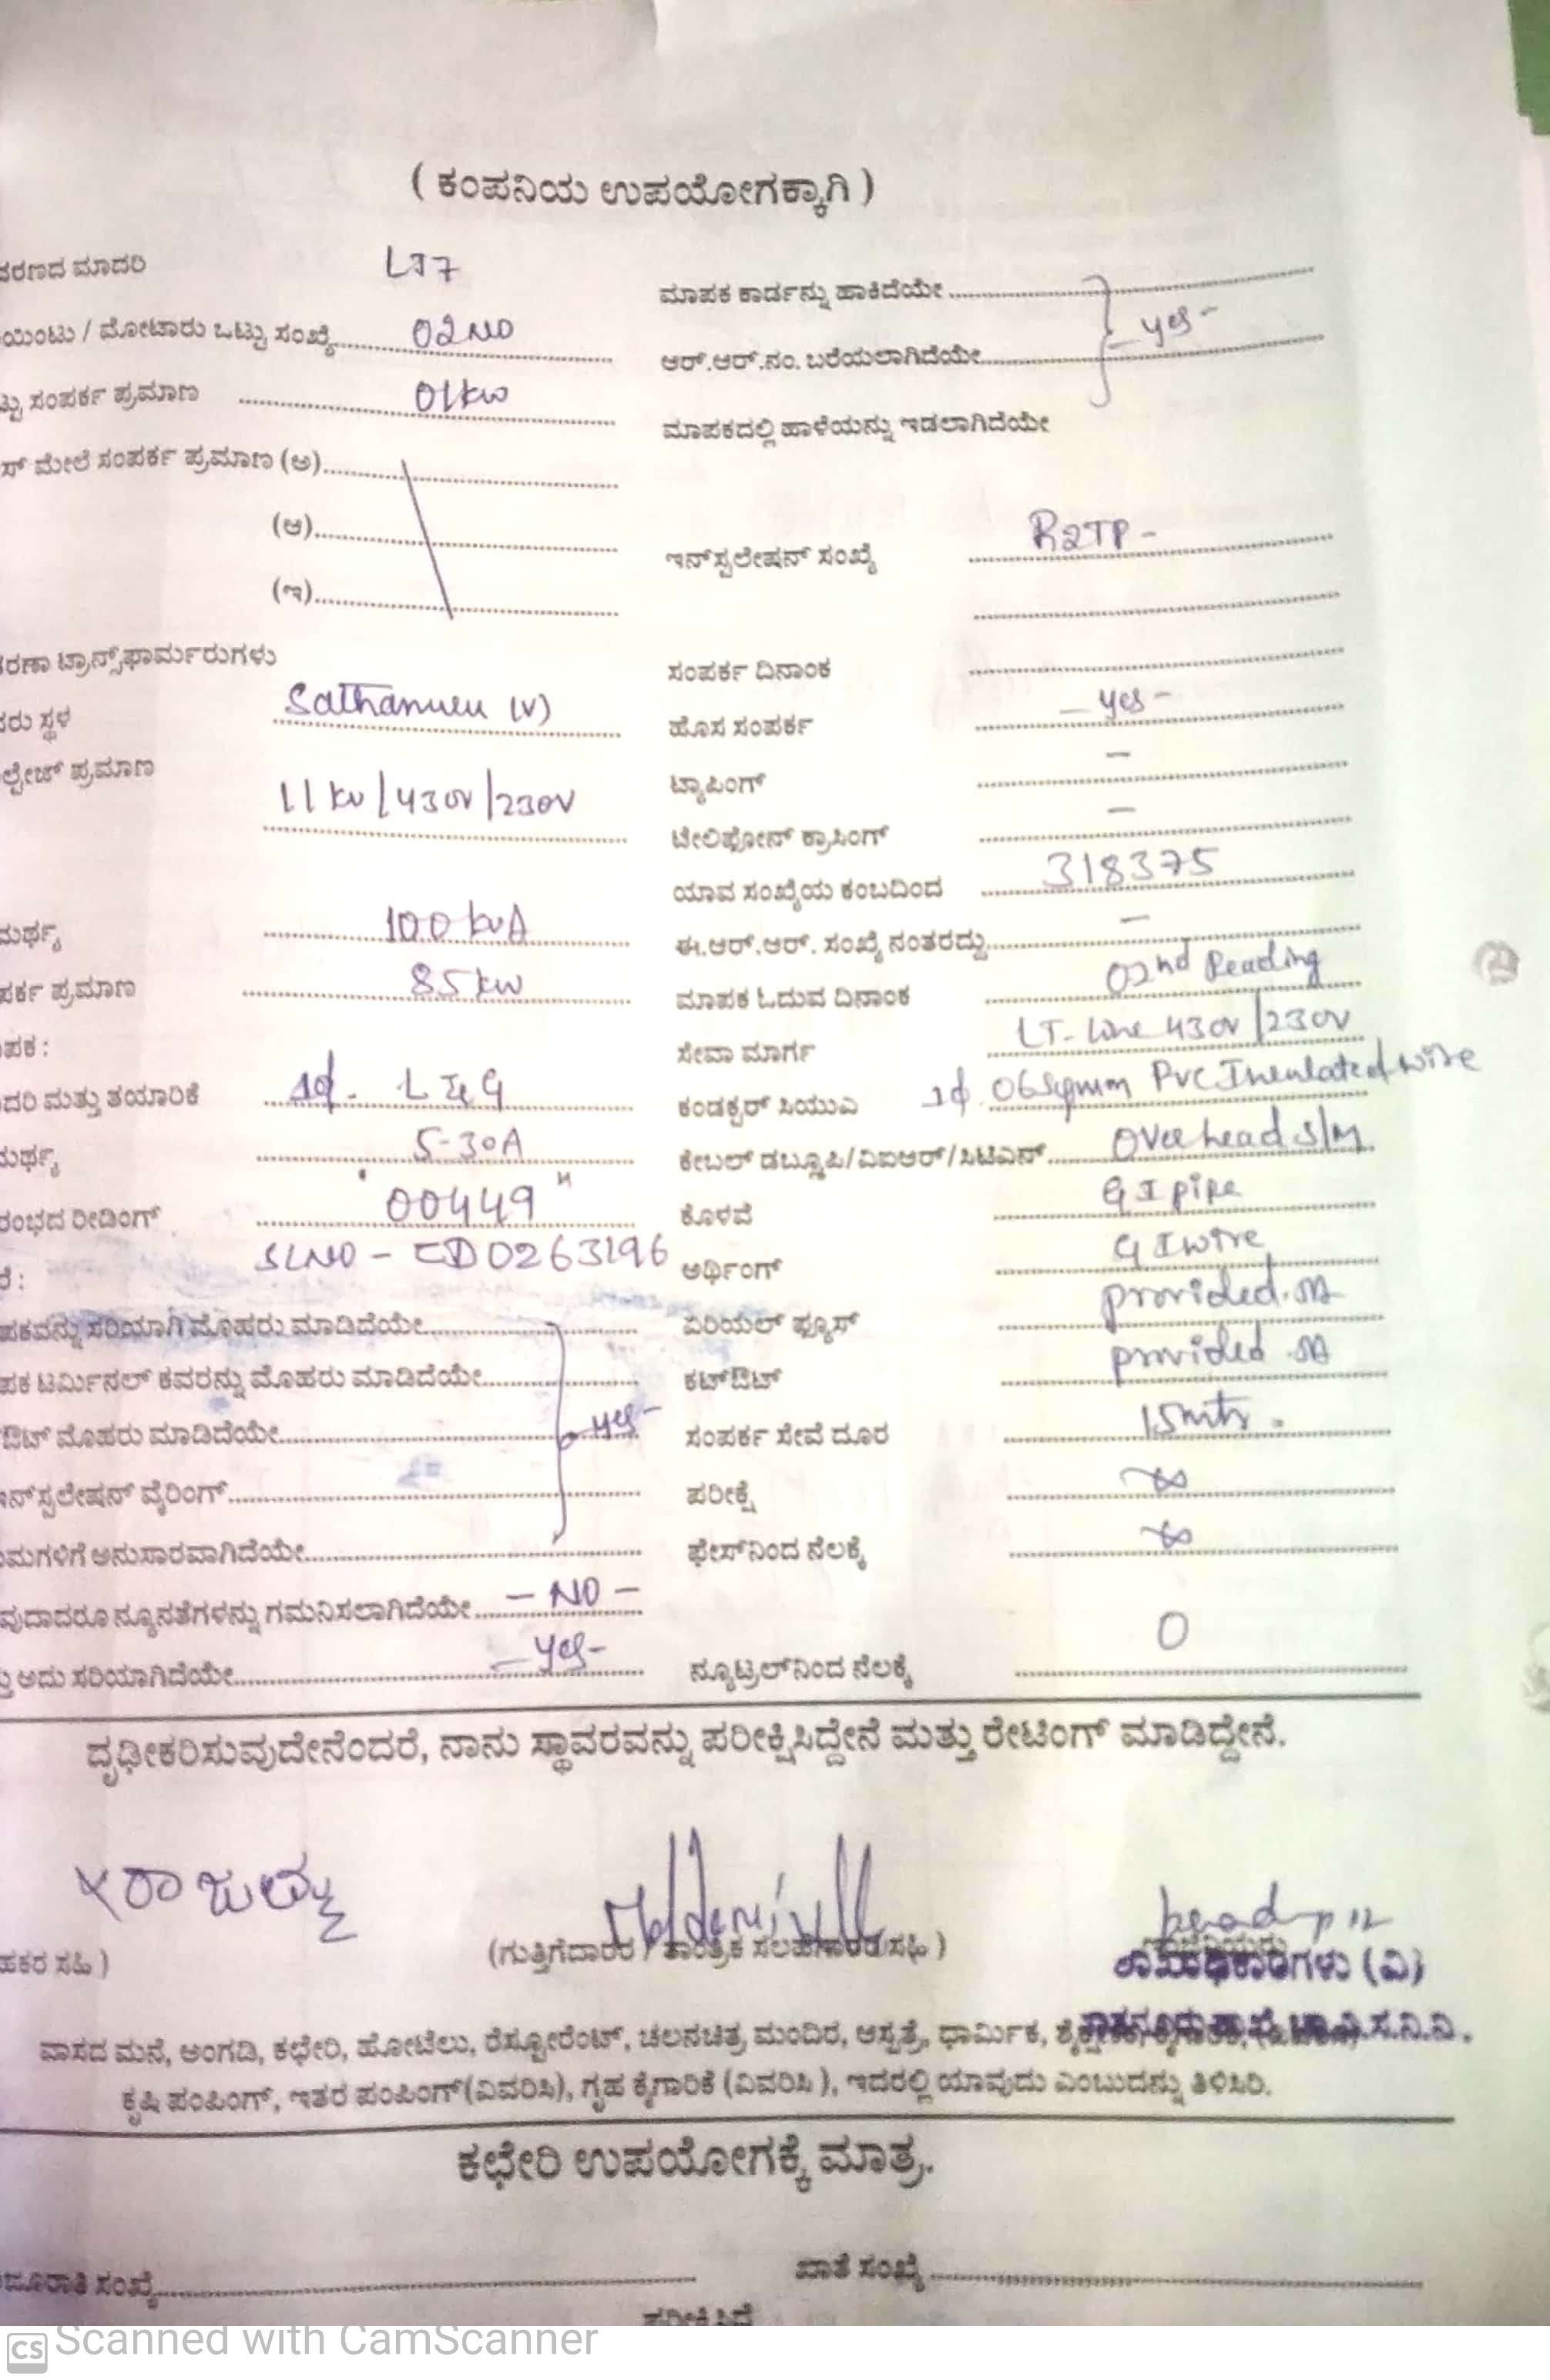 ( ಕಂಪನಿಯ ಉಪಯೋಗಕ್ಕಾಗಿ )
ಸರಣದ ಮಾದರಿ LT7
ಯಿಂಟು / ಮೋಟಾರು ಒಟ್ಟು ಸಂಖ್ಯೆ 02 NO
ಟ್ಟು ಸಂಪರ್ಕ ಪ್ರಮಾಣ 01kw
ಸ್ ಮೇಲೆ ಸಂಪರ್ಕ ಪ್ರಮಾಣ (ಅ)
(ಆ)
(ಇ)
ರಣಾ ಟ್ರಾನ್ಸ್‌ಫಾರ್ಮರುಗಳು
ರು ಸ್ಥಳ Sathanuru (V)
ಲ್ಟೇಜ್ ಪ್ರಮಾಣ
11 kv / 430V / 230V
ಮರ್ಥ್ಯ 100 kvA
ಪರ್ಕ ಪ್ರಮಾಣ 85 kw
ಪಕ :
ದರಿ ಮತ್ತು ತಯಾರಿಕೆ 1ϕ. L & G
ಮರ್ಥ್ಯ 5-30A
ರಂಭದ ರೀಡಿಂಗ್ "00449"
SLNO - CD0263196
ರೆ :
ಪಕವನ್ನು ಸರಿಯಾಗಿ ಮೊಹರು ಮಾಡಿದೆಯೇ
ಪಕ ಟರ್ಮಿನಲ್ ಕವರನ್ನು ಮೊಹರು ಮಾಡಿದೆಯೇ
ಔಟ್ ಮೊಹರು ಮಾಡಿದೆಯೇ yes-
ಇನ್‌ಸ್ಟಲೇಷನ್ ವೈರಿಂಗ್
ಮಗಳಿಗೆ ಅನುಸಾರವಾಗಿದೆಯೇ
ವುದಾದರೂ ನ್ಯೂನತೆಗಳನ್ನು ಗಮನಿಸಲಾಗಿದೆಯೇ - NO -
ತ್ತು ಅದು ಸರಿಯಾಗಿದೆಯೇ - yes-
ಮಾಪಕ ಕಾರ್ಡನ್ನು ಹಾಕಿದೆಯೇ
ಆರ್.ಆರ್.ನಂ. ಬರೆಯಲಾಗಿದೆಯೇ - yes -
ಮಾಪಕದಲ್ಲಿ ಹಾಳೆಯನ್ನು ಇಡಲಾಗಿದೆಯೇ
ಇನ್‌ಸ್ಟಲೇಷನ್ ಸಂಖ್ಯೆ R2TP -
ಸಂಪರ್ಕ ದಿನಾಂಕ
ಹೊಸ ಸಂಪರ್ಕ - yes -
ಟ್ಯಾಪಿಂಗ್ -
ಟೇಲಿಫೋನ್ ಕ್ರಾಸಿಂಗ್ -
ಯಾವ ಸಂಖ್ಯೆಯ ಕಂಬದಿಂದ 318375
ಈ.ಆರ್.ಆರ್. ಸಂಖ್ಯೆ ನಂತರದ್ದು -
ಮಾಪಕ ಓದುವ ದಿನಾಂಕ 02nd Reading
ಸೇವಾ ಮಾರ್ಗ LT- Line 430V / 230V
ಕಂಡಕ್ಟರ್ ಸಿಯುಎ 1ϕ. 06 sqmm PVC Insulated wire
ಕೇಬಲ್ ಡಬ್ಲ್ಯೂಪಿ/ವಿಐಆರ್/ಸಿಟಿಎಸ್ Over head S/M
ಕೊಳವೆ G I pipe
ಅರ್ಥಿಂಗ್ G I wire
ಏರಿಯಲ್ ಫ್ಯೂಸ್ provided.
ಕಟ್‌ಔಟ್ provided.
ಸಂಪರ್ಕ ಸೇವೆ ದೂರ 15mtr.
ಪರೀಕ್ಷೆ ∞
ಫೇಸ್‌ನಿಂದ ನೆಲಕ್ಕೆ ∞
ನ್ಯೂಟ್ರಲ್‌ನಿಂದ ನೆಲಕ್ಕೆ 0
ದೃಢೀಕರಿಸುವುದೇನೆಂದರೆ, ನಾನು ಸ್ಥಾವರವನ್ನು ಪರೀಕ್ಷಿಸಿದ್ದೇನೆ ಮತ್ತು ರೇಟಿಂಗ್ ಮಾಡಿದ್ದೇನೆ.
ಹಕರ ಸಹಿ ) (ಗುತ್ತಿಗೆದಾರರ / ತಾಂತ್ರಿಕ ಸಲಹೆಗಾರರ ಸಹಿ )
ಶಾಖಾಧಿಕಾರಿಗಳು (ವಿ)
ವಾಸದ ಮನೆ, ಅಂಗಡಿ, ಕಛೇರಿ, ಹೋಟೆಲು, ರೆಸ್ಟೋರೆಂಟ್, ಚಲನಚಿತ್ರ ಮಂದಿರ, ಆಸ್ಪತ್ರೆ, ಧಾರ್ಮಿಕ,
ಕೃಷಿ ಪಂಪಿಂಗ್, ಇತರ ಪಂಪಿಂಗ್(ವಿವರಿಸಿ), ಗೃಹ ಕೈಗಾರಿಕೆ (ವಿವರಿಸಿ ), ಇದರಲ್ಲಿ ಯಾವುದು ಎಂಬುದನ್ನು ತಿಳಿಸಿರಿ.
ಕಛೇರಿ ಉಪಯೋಗಕ್ಕೆ ಮಾತ್ರ.
ಜೂರಾತಿ ಸಂಖ್ಯೆ ಖಾತೆ ಸಂಖ್ಯೆ
CS Scanned with CamScanner